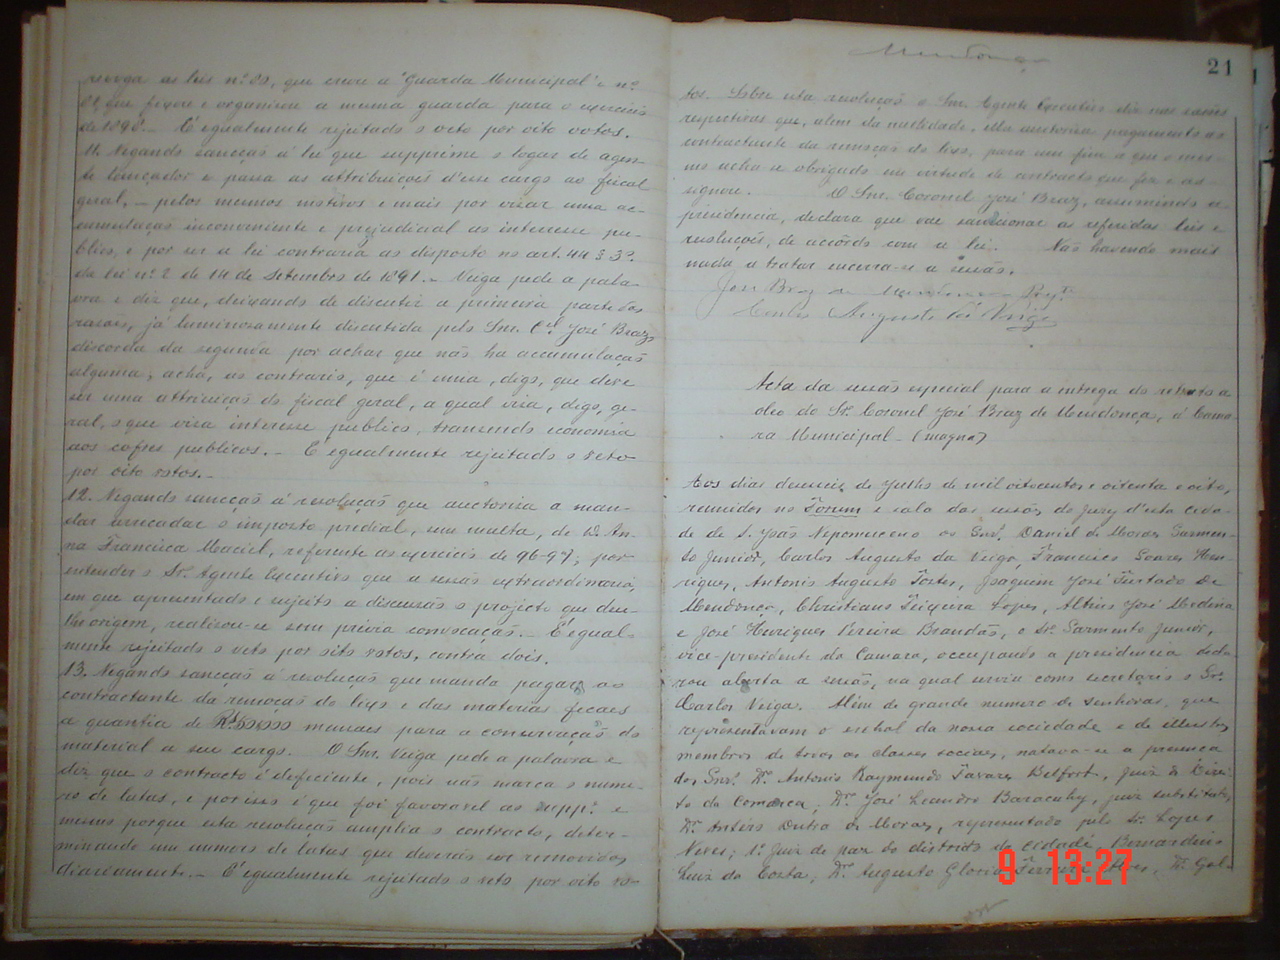 revoga as leis nº 80, que creou a "Guarda Municipal" e nº
que fixou e organisou a mesma guarda para o exercicio
de 1898. É egualmente rejeitado o veto por oito votos.
11. Negando sancção á lei que supprime o logar de agen-
te lançador e passa as attribuições d'esse cargo ao fiscal
geral, - pelos mesmos motivos e mais por crear uma ac-
cumulação inconveniente e prejudicial ao interesse pu-
blico, e por ser a lei contraria ao disposto no art. 44 § 3º
da lei nº 2 de 14 de Setembro de 1891. - Veiga pede a pala-
vra e diz que, deixando de discutir a primeira parte das
rasões, já luminosamente discutida pelo Snr. Cel José Braz,
discorda da segunda por achar que não ha accumulação
alguma; acha, ao contrario, que é uma, digo, que deve
ser uma attribuição do fiscal geral, a qual viria, digo, ge-
ral, o que viria interesse publico, trazendo economia
aos cofres publicos. - É egualmente rejeitado o veto
por oito votos. -
12. Negando sancção á resolução que auctorisa a man-
dar arrecadar o imposto predial, sem multa, de D. An-
na Francisca Maciel, referente ao exercicio de 96-97; por
entender o Sr. Agente Executivo que a sessão extraordinaria,
em que apresentado e sujeito a discussão o projecto que deu-
lhe origem, realisou-se sem prévia convocação. - É egual-
mente rejeitado o veto por oito votos, contra dois.
13. Negando sancção á resolução que manda pagar ao
contractante da remoção do lixo e das materias fecaes
a quantia de mensaes para a conservação do
material a seu cargo. O Snr. Veiga pede a palavra e
diz que o contracto é deficiente, pois não marca o nume-
ro de latas, e por isso é que foi favoravel ao supp.e e
mesmo porque esta resolução amplia o contracto, deter-
minando um numero de latas que deverão ser removidas
diariamente. - É egualmente rejeitado o veto por oito vo-
Mendonça
21
tos. Sobre esta resolução o Snr. Agente Executivo diz nas rasões
respectivas que, alem da nullidade, ella auctorisa pagamento ao
contractante da remoção do lixo, para um fim a que o mes-
mo acha-se obrigado em virtude do contracto que fez e as-
signou. O Snr. Coronel José Braz, assumindo a
presidencia, declara que vae sanccionar as referidas leis e
resoluções, de accôrdo com a lei. Não havendo mais
nada a tratar encerra-se a sessão.
José Braz de Mendonça Prsz.te
Carlos Augusto da Veiga
Acta da sessão especial para a entrega do retrato a
oleo do Sr. Coronel José Braz de Mendonça, á Cama-
ra Municipal - (magna)
Aos dias deseseis de Julho de mil oitocentos e oitenta e oito,
reunidos no Forum e sala das sessões do jury d'esta cida-
de de S. João Nepomuceno os Snrs. Daniel de Moraes Sarmen-
to Junior, Carlos Augusto da Veiga, Francisco Soares Hen-
riques, Antonio Augusto Tostes, Joaquim José Furtado de
Mendonça, Christiano Teixeira Lopes, Altino José Medina
e José Henriques Pereira Brandão, o Sr. Sarmento Junior,
vice-presidente da Camara, occupando a presidencia decla-
rou aberta a sessão, na qual serviu como secretario o Sr.
Carlos Veiga. Alem de grande numero de senhoras, que
representavam o escol da nossa sociedade e de illustres
membros de todas as classes sociaes, notava-se a presença
dos Snrs. Dr. Antonio Raymundo Tavares Belfort, juiz de Direi-
to da Comarca, Dr. José Leandro Baracuhy, juiz substituto,
Dr. Antero Dutra de Moraes, representado pelo Sr. Lopes
Neves; 1º juiz de paz do districto da cidade, Bernardino
Luiz da Costa, Dr. Augusto Gloria Ferreira Alves, Dr. Gal-
9 13:27